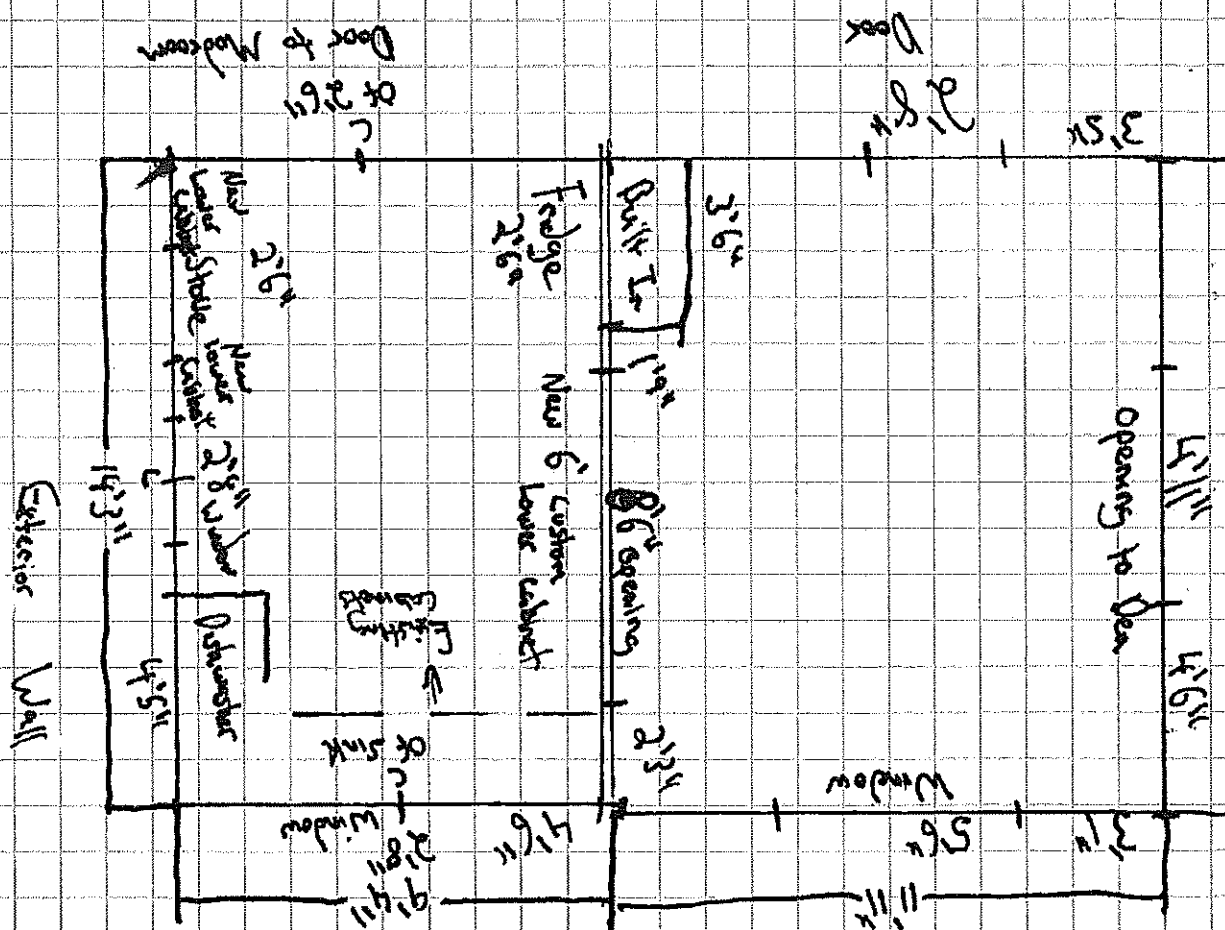 Door to Mudroom
of 2'6"
C
Door
2'8"
3'2"
New
Lower
Cabinet
Stove
2'6"
New
Lower
Cabinet
C
2'8" Window
Dishwasher
14'3"
4'5"
Exterior Wall
Fridge
2'6"
Built In
3'6"
1'9"
New 6' Custom
Lower Cabinet
8'6" opening
2'3"
Existing
Cabinets
C
of Sink
Window
2'8"
4'6"
9'4"
4'11"
Opening to Den
4'6"
Window
5'6"
3'1"
11'11"